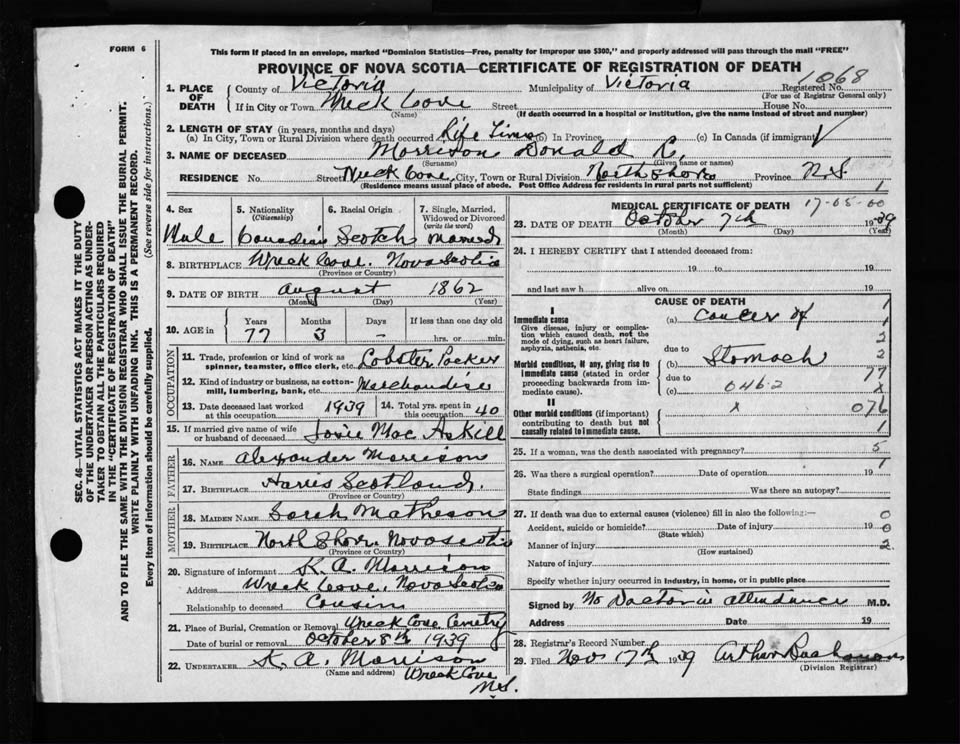 FORM 6
This form if placed in an envelope, marked "Dominion Statistics—Free, penalty for improper use $300," and properly addressed will pass through the mail "FREE"
PROVINCE OF NOVA SCOTIA—CERTIFICATE OF REGISTRATION OF DEATH
1068
1. PLACE OF DEATH County of Victoria Municipality of Victoria Registered No.
(For use of Registrar General only)
If in City or Town Wreck Cove Street House No.
(Name) (If death occurred in a hospital or institution, give the name instead of street and number)
2. LENGTH OF STAY (in years, months and days)
(a) In City, Town or Rural Division where death occurred Life Time (b) In Province (c) In Canada (if immigrant)
3. NAME OF DECEASED Morrison Donald R.
(Surname) (Given name or names)
RESIDENCE No. Street Wreck Cove, City, Town or Rural Division North Shore Province N.S.
(Residence means usual place of abode. Post Office Address for residents in rural parts not sufficient) 1
4. Sex 5. Nationality (Citizenship) 6. Racial Origin 7. Single, Married, Widowed or Divorced (write the word)
Male Canadian Scotch Married
8. BIRTHPLACE Wreck Cove. Nova Scotia
(Province or Country)
9. DATE OF BIRTH August 1862
(Month) (Day) (Year)
10. AGE in Years Months Days If less than one day old
77 3 – hrs. or min.
OCCUPATION
11. Trade, profession or kind of work as spinner, teamster, office clerk, etc. Lobster Packer
12. Kind of industry or business, as cotton-mill, lumbering, bank, etc. Merchandise
13. Date deceased last worked at this occupation 1939 14. Total yrs. spent in this occupation 40
15. If married give name of wife or husband of deceased Josie Mac Askill
FATHER
16. NAME Alexander Morrison
17. BIRTHPLACE Harris Scotland.
(Province or Country)
MOTHER
18. MAIDEN NAME Sarah Matheson
19. BIRTHPLACE North Shore. Nova scotia
(Province or Country)
20. Signature of informant K. A. Morrison
Address Wreck Cove. Nova Scotia
Relationship to deceased Cousin
21. Place of Burial, Cremation or Removal Wreck Cove Cemetry
Date of burial or removal October 8th 1939
22. UNDERTAKER K. A. Morrison
(Name and address) Wreck Cove
N.S.
MEDICAL CERTIFICATE OF DEATH 17-05-00
23. DATE OF DEATH October 7th 1939
(Month) (Day) (Year)
24. I HEREBY CERTIFY that I attended deceased from:
19 to 19
and last saw h alive on 19
CAUSE OF DEATH
I
Immediate cause (a) Cancer of
Give disease, injury or complication which caused death, not the mode of dying, such as heart failure, asphyxia, asthenia, etc.
due to
Morbid conditions, if any, giving rise to immediate cause (stated in order proceeding backwards from immediate cause).
(b) Stomach
due to
(c) 046.2
II
Other morbid conditions (if important) contributing to death but not causally related to immediate cause.
x
1
1
2
2
77
x
076
1
25. If a woman, was the death associated with pregnancy? 5
1
26. Was there a surgical operation? Date of operation 19
State findings Was there an autopsy?
27. If death was due to external causes (violence) fill in also the following:— 0
Accident, suicide or homicide? Date of injury 19 0
(State which)
Manner of injury 2
(How sustained)
Nature of injury
Specify whether injury occurred in industry, in home, or in public place
Signed by No Doctor in attendance M.D.
Address Date 19
28. Registrar's Record Number
29. Filed Nov 17th 1939 Arthur Buchanan
(Division Registrar)
SEC. 46—VITAL STATISTICS ACT MAKES IT THE DUTY
OF THE UNDERTAKER OR PERSON ACTING AS UNDER-
TAKER TO OBTAIN ALL THE PARTICULARS REQUIRED
IN THE "CERTIFICATE OF REGISTRATION OF DEATH"
AND TO FILE THE SAME WITH THE DIVISION REGISTRAR WHO SHALL ISSUE THE BURIAL PERMIT.
WRITE PLAINLY WITH UNFADING INK. THIS IS A PERMANENT RECORD.
Every item of information should be carefully supplied. (See reverse side for instructions.)